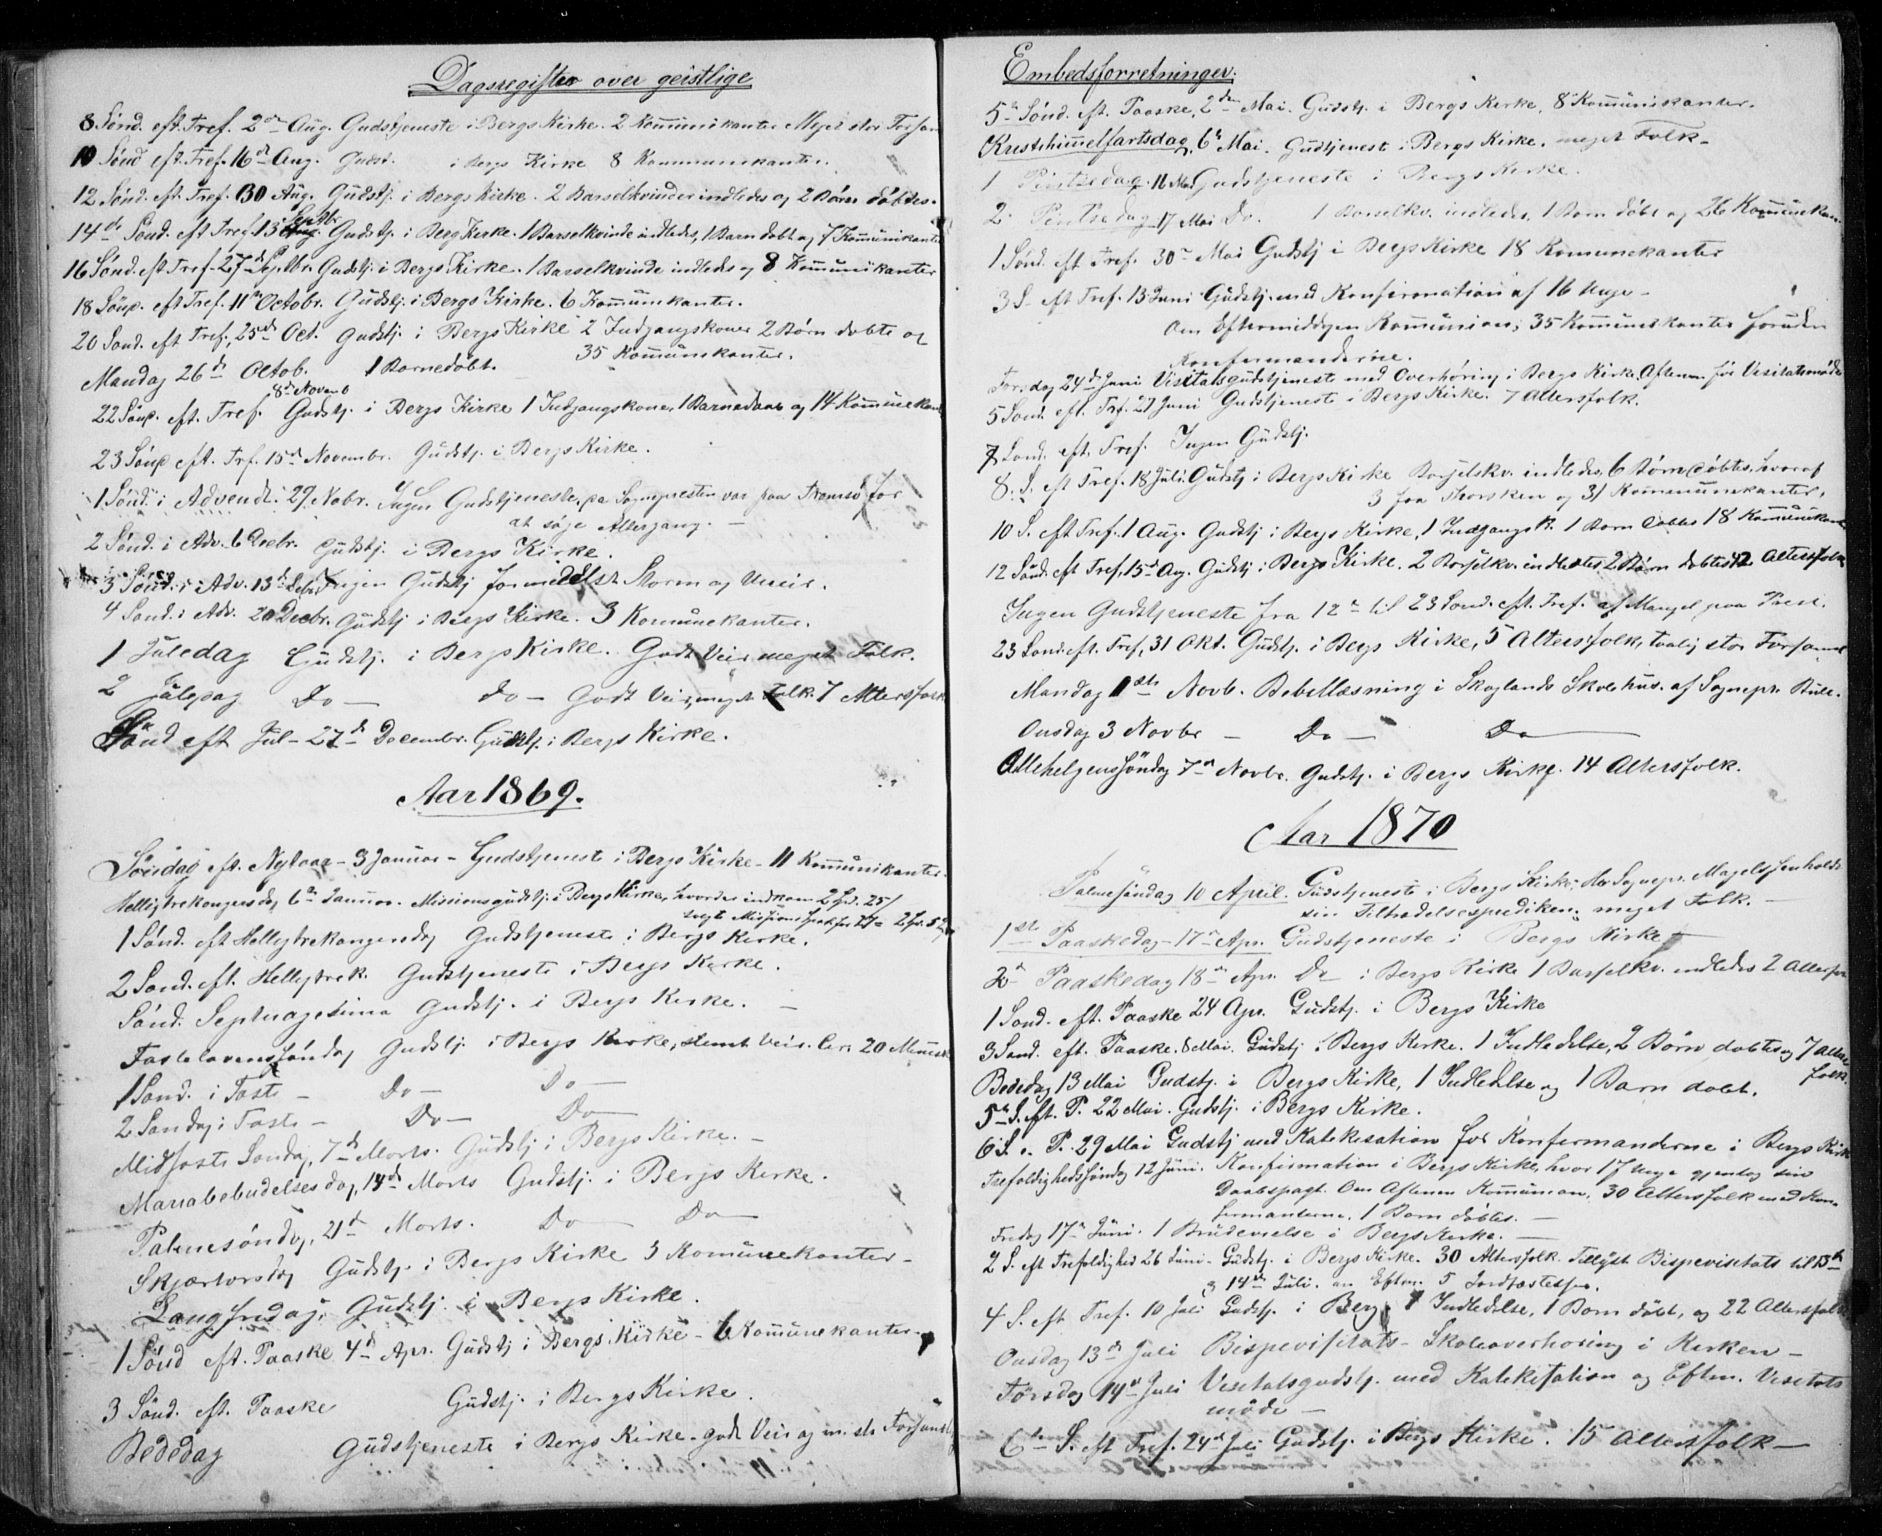 Dagsregister over geistlige
8 Sønd. eft. Tref. 2den Aug. Gudstjeneste i Bergs Kirke. 2 Kommunikanter Meget stor Forsam
10 Sønd eft. Tref. 16de Aug. Gudst. i Bergs Kirke 8 Kommunikanter.
12 Sønd. eft. Tref. 30 Aug. Gudstj. i Bergs Kirke. 2 Barselkvinder indledes og 2 Børn døbtes.
14de Sønd. eft Tref. 13 Septbr. Gudstj. i Berg Kirke. 1 Barselkvinde indledes, 1 Barn døbt og 7 Kommunikanter
16 Sønd. eft Tref. 27de Septbr. Gudstj. i Bergs Kirke. 1 Barselkvinde indledes og 8 Kommunikanter
18 Sønd. eft Tref. 11te Octobr. Gudstj. i Bergs Kirke. 6 Kommunikanter.
20 Sønd. eft Tref. 25de Oct. Gudstj. i Bergs Kirke 2 Indgangskoner 2 Børn døbte og
35 Kommunikanter.
Mandag 26de Octob. 1 Barnedøbt.
8de Novemb
22 Sønd. eft. Tref. Gudstj. i Bergs Kirke 1 Indgangskone, 1 Barnedaab og 14 Kommunekant
23 Sønd eft. Trf. 15de Novembr. Gudstj. i Bergs Kirke.
1 Sønd. i Advendt. 29 Nobr. Ingen Gudstjeneste, da Sognepresten var paa Tromsø for
at søge Altergang. —
2 Sønd. i Adv. 6 Decbr. Gudstj. i Bergs Kirke.
3 Sønd. i Adv. 13de Decbr. Ingen Gudstj formedelst Storm og Uveir.
4 Sønd. i Adv. 20 Decbr. Gudstj i Bergs Kirke. 3 Kommunekanter.
1 Juledag Gudstj. i Bergs Kirke. Godt Veir meget Folk.
2 Juledag Do — Do — Godt Veir, meget Folk 7 Altersfolk
Sønd eft Jul – 27de Decembr. Gudstj. i Bergs Kirke.
Aar 1869.
Søndag eft. Nytaar – 3 Januar – Gudstjeneste i Bergs Kirke – 11 Kommunikanter.
Helligtrekongersdag 6te Januar. Missionsgudstj. i Bergs Kirke, hvorder indkom 2 Spd. 25/
1 Sønd. eft Helligtrekongersdag Gudstjeneste i Bergs Kirke.
2 Sønd. eft. Helligtrek. Gudstjeneste i Bergs Kirke.
Sønd. Septuagesima Gudstj. i Bergs Kirke. —
Fastelavenssøndag Gudstj. i Bergs Kirke, slemt Veir. Ca. 20 Mennesk
1 Sønd. i Faste – Do — Do —
2 Søndag i Faste – Do — Do —
Midfaste Søndag, 7de Marts. Gudstj i Bergs Kirke. —
Mariabebudelsesdag, 14de Marts Gudstj. i Bergs Kirke.
Palmesøndag, 21de Marts. Do — Do —
Skjærtorsdag Gudstj. i Bergs Kirke 3 Kommunekanter –
Langfredag, Gudstj. i Bergs Kirke.
1 Sønd eft. Paaske 4de Apr. Gudstj i Bergs Kirke – 6 Kommunekanter.
3 Sønd. eft. Paaske Gudstj. i Bergs Kirke.
Bededag Gudstjeneste i Bergs Kirke. godt Veir og m. st. Forsamlg
Embedsforretninger.
5te Sønd. eft. Paaske, 2den Mai. Gudstj. i Bergs Kirke, 8 Kommuniskanter.
Kristihimmelfartsdag, 6te Mai. Gudtjenest i Bergs Kirke. meget Folk –
1 Pintsedag. 16 Mai Gudstjeneste i Bergs Kirke.
2. Pintsedag 17 Mai Do. 1 Barselkv. indledes, 1 Barn døbt og 26 Kommunikan
1 Sønd. eft Tref. 30te Mai Gudstj i Bergs Kirke 18 Kommunekanter
3 S. eft Tref. 13 Juni Gudstj. med Konfirmation af 16 Unge –
Om Eftermiddagen Kommunion; 35 Kommunekanter foruden
Konfirmanderne.
Torsdag 24de Juni Visitatsgudstjeneste med Overhøring i Bergs Kirke. Aftenen før Visitatsmøde
5 Sønd. eft. Trf. 27 Juni Gudstjeneste i Bergs Kirke. 7 Altersfolk.
7 Sønd. eft. Tref. Ingen Gudstj.
8. S. eft Tref. 18 Juli. Gudstj i Bergs Kirke Barselskv. indledes, 6 Børn døbtes, hvoraf
3 fra Thorsken og 31 Kommunekanter.
10 S. eft Tref. 1 Aug. Gudstj i Bergs Kirke, 1 Indgangs K. 1 Barn døbtes 18 Kommunikant
12 Sønd. eft Tref, 15de Aug. Gudstj i Bergs Kirke. 2 Barselkv. indledtes 2 Børn døbtes 12 Altersfolk
Ingen Gudstjeneste fra 12te til 23 Sønd. eft. Tref. af Mangel paa Prest.
23 Sønd. eft. Tref, 31 Okt. Gudstj. i Bergs Kirke, 5 Altersfolk, taalig stor Forsaml
Mandag 1ste Novb. Bibellæsning i Skaglands Skolehus. af Sognepr. Bull.
Onsdag 3 Novbr – Do — Do —
Allehelgenssøndag 7de Novbr. Gudstj. i Bergs Kirke. 14 Altersfolk.
Aar 1870
Palmesøndag 10 April. Gudstjeneste i Bergs Kirke; Hr Sognepr. Magelssen holdt
sin Tiltrædelsesprediken; meget Folk. —
1ste Paaskedag – 17de Apr. Gudstjeneste i Bergs Kirke
2de Paaskedag 18de Apr. Do — i Bergs Kirke 1 Barselkv. indledes 2 Altersfo
1 Sønd. eft. Paaske 24 Apr. Gudstj. i Bergs Kirke
3 Sønd. eft. Paaske. 8 Mai. Gudstj i Bergs Kirke. 1 Indledelse, 2 Børn døbtes og 7 Alters
folk.
Bededag 13 Mai Gudstj. i Bergs Kirke, 1 Indledelse og 1 Barn døbt.
5te S. eft. P. 22 Mai. Gudstj. i Bergs Kirke.
6 S. e. P. 29 Mai Gudstj med Katekisation for Konfirmanderne i Bergs Kirke
Trefoldighedssøndag 12 Juni. Konfirmation i Bergs Kirke, hvor 17 Unge gjentog sin
Daabspagt. Om Aftenen Kommunion, 30 Altersfolk med Kon-
firmanterne, 1 Barn døbtes. —
Fredag 17de Juni. 1 Brudevielse i Bergs Kirke. —
2 S. eft Trefoldighed 26 Juni – Gudstj. i Bergs Kirke. 30 Altersfolk. Tillyst Bispevisitats til 13de
og 14de Juli. om Eftm. 5 Jordfæstelser.
4 S. eft Tref. 10 Juli Gudstj. i Berg. 1 Indledelse, 1 Barn døbt, og 22 Altersfolk
Onsdag 13de Juli Bispevisitats – Skoleoverhøring i Kirken –
Torsdag 14de Juli Visitatsgudstj. med Katekisation og Eftm. Visitats
møde —
6te S. eft Tref. 24de Juli Gudstj. i Bergs Kirke. 15 Altersfolk —